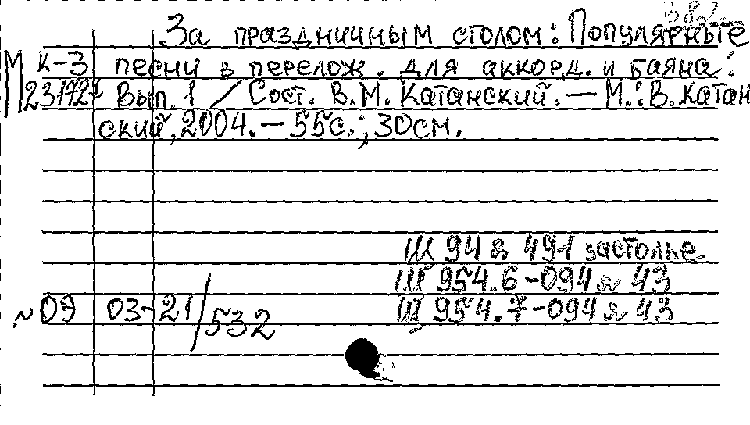 За праздничным столом: Популярные
М К-3 песни в перелож. для аккорд. и баяна.
Вып. 1 / Сост. В.М. Катанский. — М.: В. Катан
ский, 2004. — 55с.; 30см.
Щ 94 я 491 застолье
Щ 954.6-094 я 43
~09 03-21/532 Щ 954.7-094 я 43